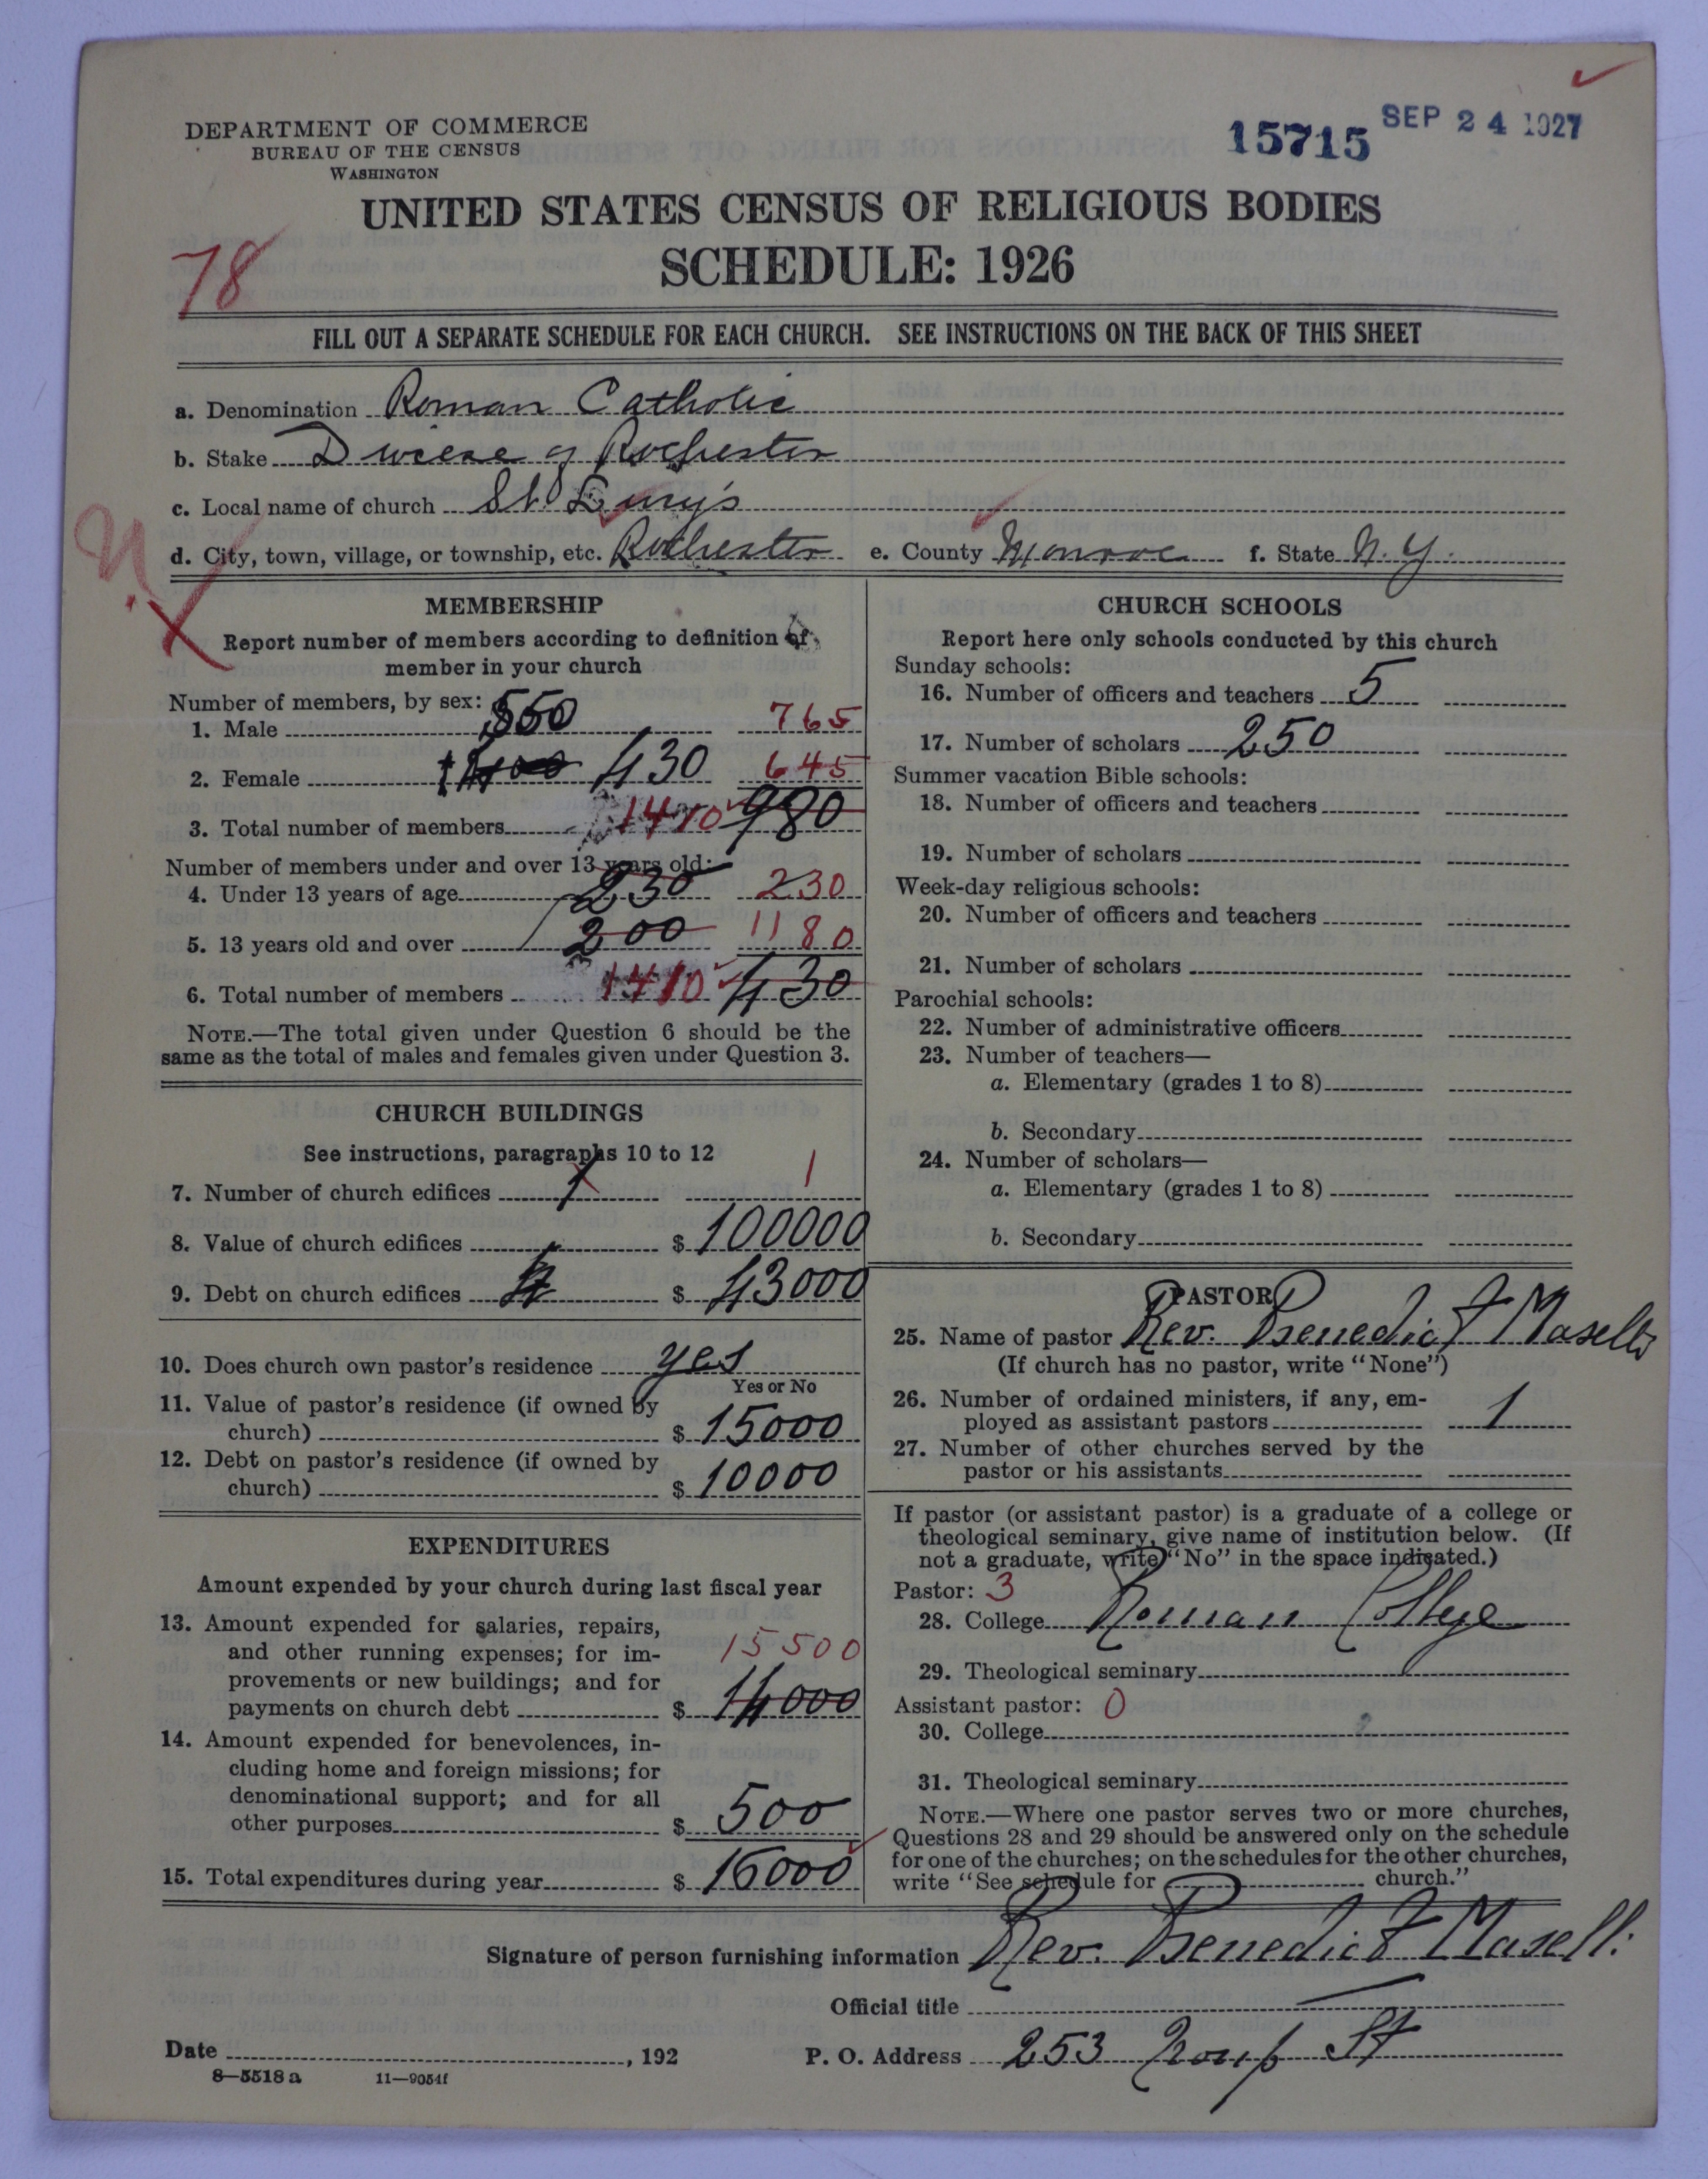 DEPARTMENT OF COMMERCE
BUREAU OF THE CENSUS
WASHINGTON
15715 SEP 24 1927
UNITED STATES CENSUS OF RELIGIOUS BODIES
SCHEDULE: 1926
78
FILL OUT A SEPARATE SCHEDULE FOR EACH CHURCH. SEE INSTRUCTIONS ON THE BACK OF THIS SHEET
a. Denomination Roman Catholic
b. Stake Diocese of Rochester
c. Local name of church St. Lucy's
d. City, town, village, or township, etc. Rochester e. County Monroe f. State N.Y.
MEMBERSHIP
Report number of members according to definition of
member in your church
Number of members, by sex:
1. Male 550 765
2. Female 430 645
3. Total number of members 1410 980
Number of members under and over 13 years old:
4. Under 13 years of age 230 230
5. 13 years old and over 200 1180
6. Total number of members 1410 430
NOTE.—The total given under Question 6 should be the
same as the total of males and females given under Question 3.
CHURCH BUILDINGS
See instructions, paragraphs 10 to 12
7. Number of church edifices 1 1
8. Value of church edifices $ 100000
9. Debt on church edifices $ 43000
10. Does church own pastor's residence yes
Yes or No
11. Value of pastor's residence (if owned by
church) $ 15000
12. Debt on pastor's residence (if owned by
church) $ 10000
EXPENDITURES
Amount expended by your church during last fiscal year
13. Amount expended for salaries, repairs,
and other running expenses; for im-
15500
provements or new buildings; and for
payments on church debt $ 14000
14. Amount expended for benevolences, in-
cluding home and foreign missions; for
denominational support; and for all
other purposes $ 500
15. Total expenditures during year $ 16000
CHURCH SCHOOLS
Report here only schools conducted by this church
Sunday schools:
16. Number of officers and teachers 5
17. Number of scholars 250
Summer vacation Bible schools:
18. Number of officers and teachers
19. Number of scholars
Week-day religious schools:
20. Number of officers and teachers
21. Number of scholars
Parochial schools:
22. Number of administrative officers
23. Number of teachers—
a. Elementary (grades 1 to 8)
b. Secondary
24. Number of scholars—
a. Elementary (grades 1 to 8)
b. Secondary
PASTOR
25. Name of pastor Rev. Benedict Maselli
(If church has no pastor, write "None")
26. Number of ordained ministers, if any, em-
ployed as assistant pastors 1
27. Number of other churches served by the
pastor or his assistants
If pastor (or assistant pastor) is a graduate of a college or
theological seminary, give name of institution below. (If
not a graduate, write "No" in the space indicated.)
Pastor: 3
28. College Roman College
29. Theological seminary
Assistant pastor: 0
30. College
31. Theological seminary
NOTE.—Where one pastor serves two or more churches,
Questions 28 and 29 should be answered only on the schedule
for one of the churches; on the schedules for the other churches,
write "See schedule for church."
Signature of person furnishing information Rev. Benedict Maselli
Official title
Date , 192 P. O. Address 253 Troup St
8—5518 a 11—9054f